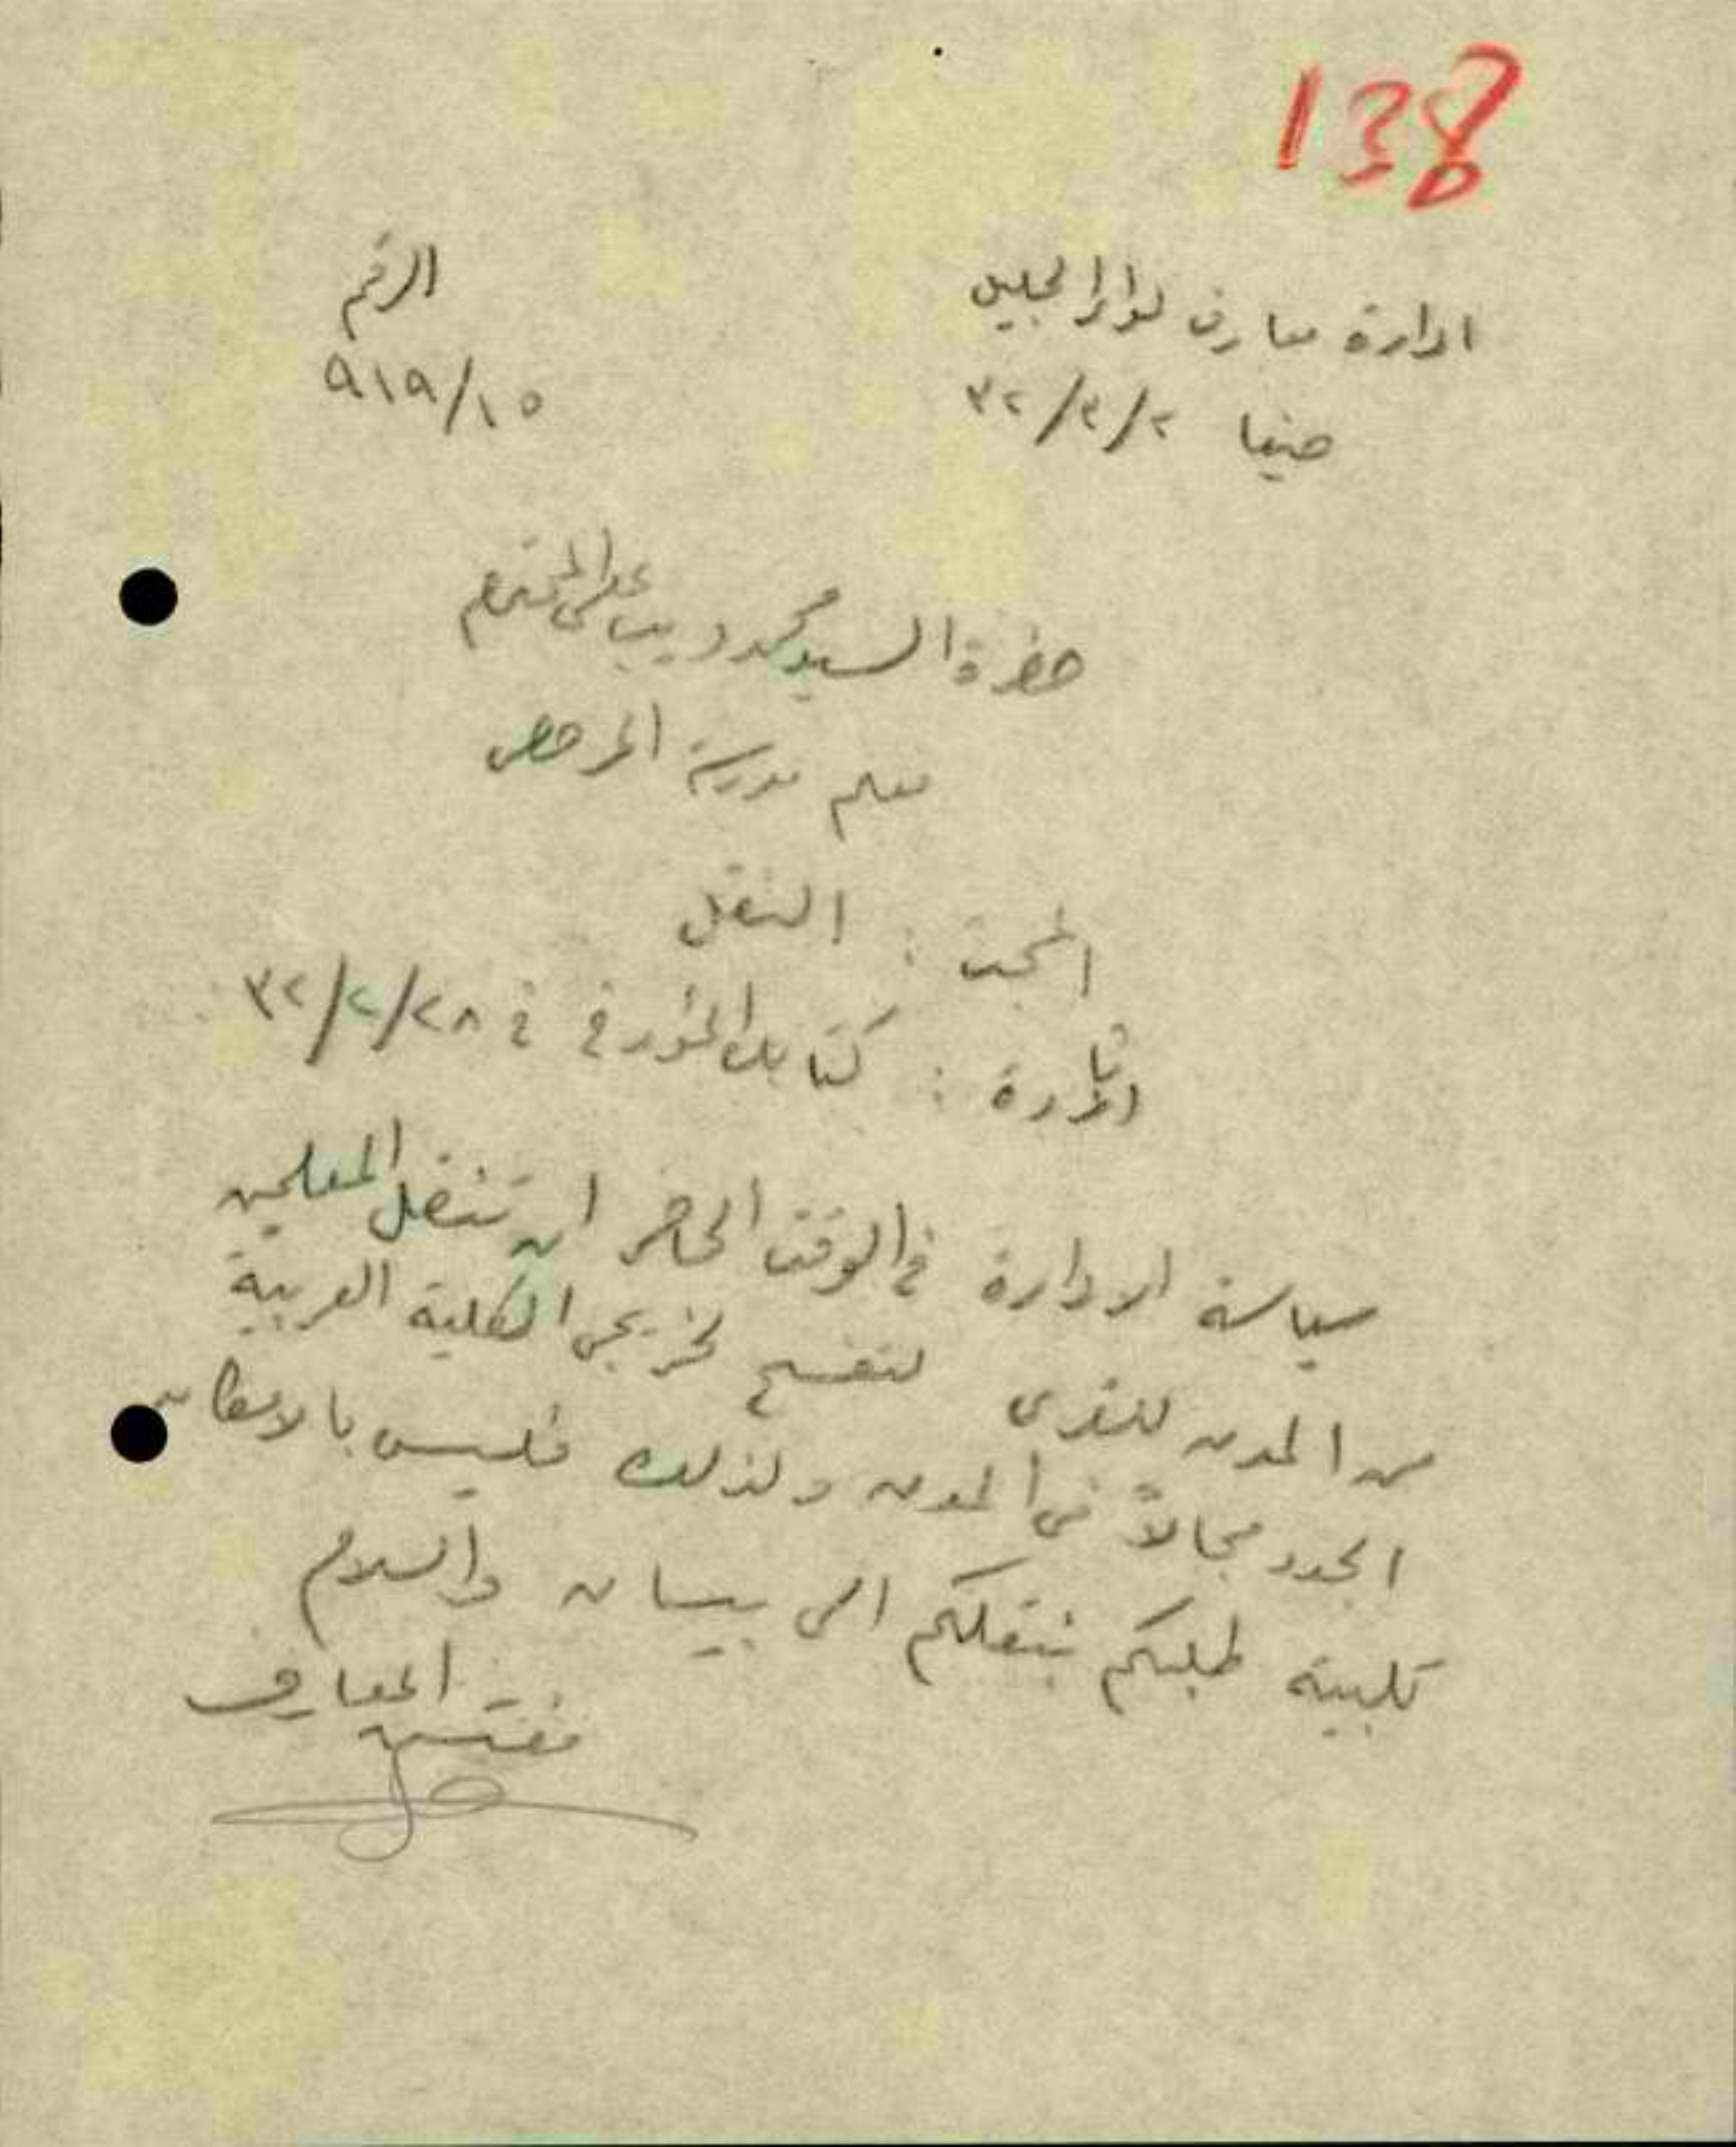 138
ادارة معارف لواء الجليل
الرقم
حيفا ٢/٣/٣٢
٩١٩/١٥
حضرة السيد محمد ديب علي المحترم
معلم مدرسة
المبحث : النقل
الاشارة : كتابك المؤرخ في ٢٨/٢/٣٢
سياسة الادارة في الوقت الحاضر ان تنقل المعلمين
من المدن للقرى لتفسح لخريجي الكلية العربية
الجدد مجالاً في المدن ولذلك فليس بالامكان
تلبية طلبكم بنقلكم الى بيسان والسلام
مفتش المعارف